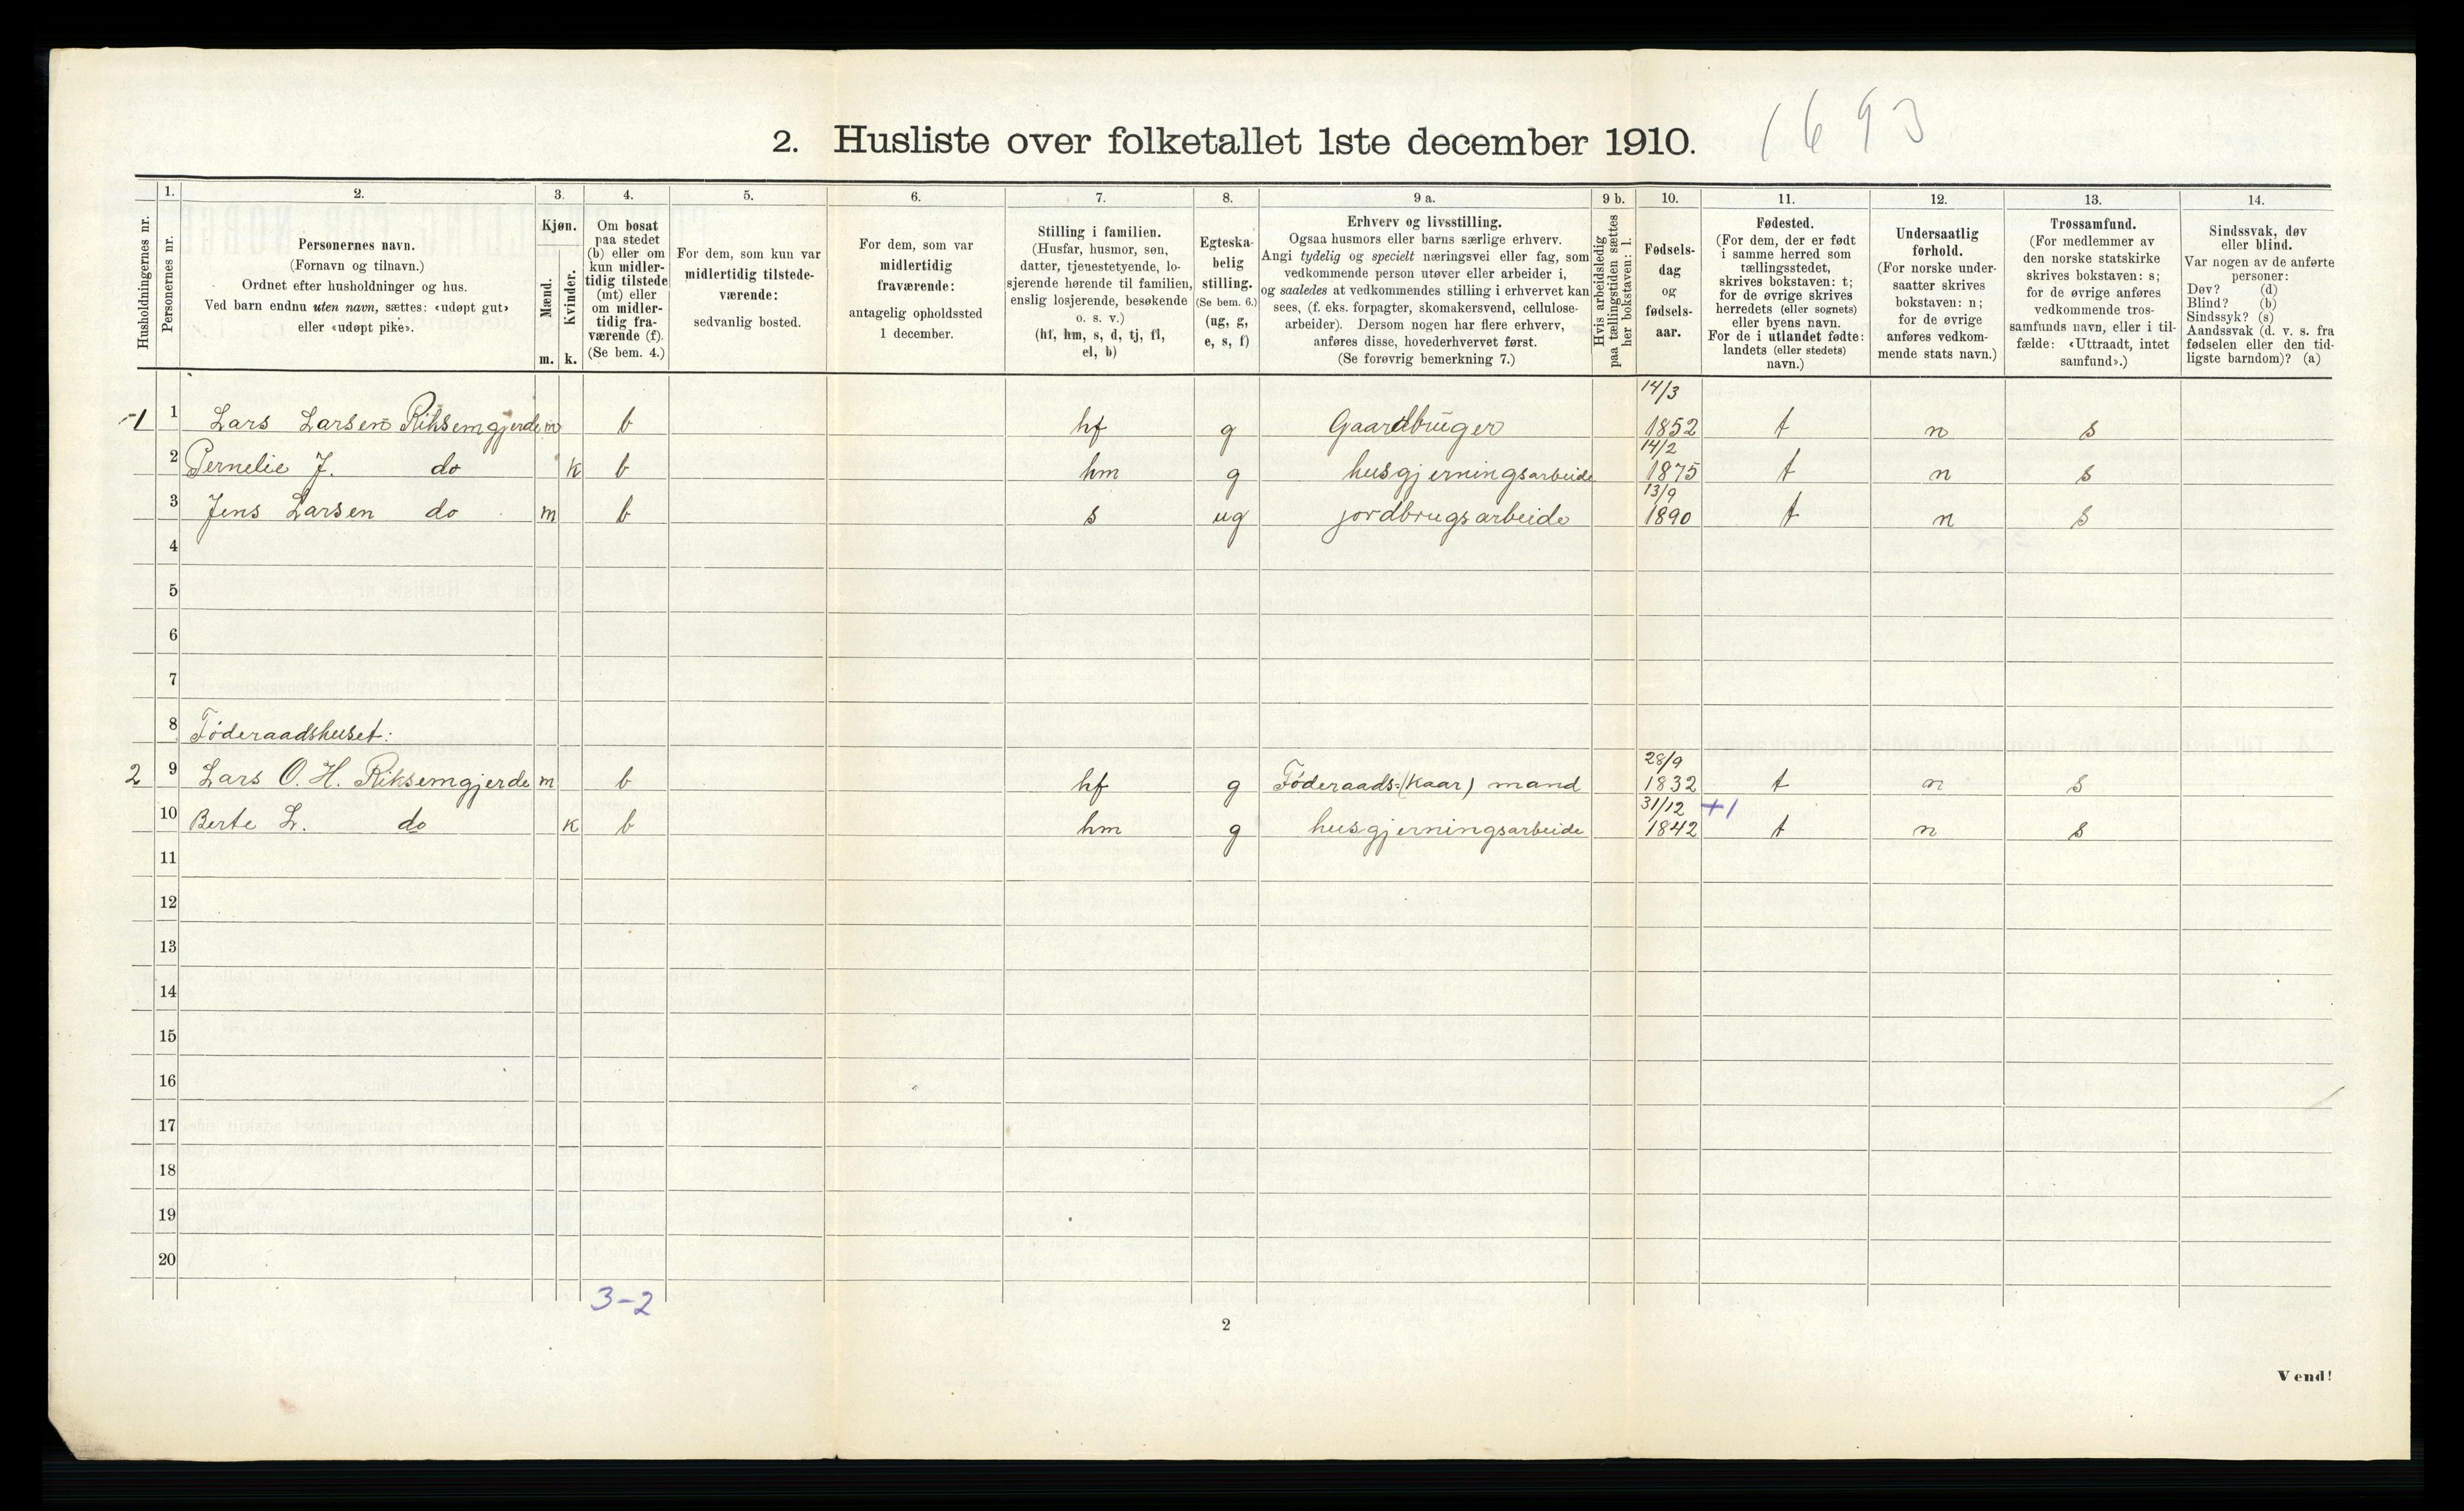 2. Husliste over folketallet 1ste december 1910.
1693
Husholdningernes nr.
1.
Personernes nr.
2.
Personernes navn.
(Fornavn og tilnavn.)
Ordnet efter husholdninger og hus.
Ved barn endnu uten navn, sættes: «udøpt gut»
eller «udøpt pike».
3.
Kjøn.
Mænd.
Kvinder.
m. k.
4.
Om bosat
paa stedet
(b) eller om
kun midler-
tidig tilstede
(mt) eller
om midler-
tidig fra-
værende (f).
(Se bem. 4.)
5.
For dem, som kun var
midlertidig tilstede-
værende:
sedvanlig bosted.
6.
For dem, som var
midlertidig
fraværende:
antagelig opholdssted
1 december.
7.
Stilling i familien.
(Husfar, husmor, søn,
datter, tjenestetyende, lo-
sjerende hørende til familien,
enslig losjerende, besøkende
o. s. v.)
(hf, hm, s, d, tj, fl,
el, b)
8.
Egteska-
belig
stilling.
(Se bem. 6.)
(ug, g,
e, s, f)
9 a.
Erhverv og livsstilling.
Ogsaa husmors eller barns særlige erhverv.
Angi tydelig og specielt næringsvei eller fag, som
vedkommende person utøver eller arbeider i,
og saaledes at vedkommendes stilling i erhvervet kan
sees, (f. eks. forpagter, skomakersvend, cellulose-
arbeider). Dersom nogen har flere erhverv,
anføres disse, hovederhvervet først.
(Se forøvrig bemerkning 7.)
9 b.
Hvis arbeidsledig
paa tællingstiden sættes
her bokstaven: l.
10.
Fødsels-
dag
og
fødsels-
aar.
11.
Fødested.
(For dem, der er født
i samme herred som
tællingsstedet,
skrives bokstaven: t;
for de øvrige skrives
herredets (eller sognets)
eller byens navn.
For de i utlandet fødte:
landets (eller stedets)
navn.)
12.
Undersaatlig
forhold.
(For norske under-
saatter skrives
bokstaven: n;
for de øvrige
anføres vedkom-
mende stats navn.)
13.
Trossamfund.
(For medlemmer av
den norske statskirke
skrives bokstaven: s;
for de øvrige anføres
vedkommende tros-
samfunds navn, eller i til-
fælde: «Uttraadt, intet
samfund».)
14.
Sindssvak, døv
eller blind.
Var nogen av de anførte
personer:
Døv? (d)
Blind? (b)
Sindssyk? (s)
Aandssvak (d. v. s. fra
fødselen eller den tid-
ligste barndom)? (a)
14/3
1 1 Lars Larsen Riksemgjerde m b hf g Gaardbruger 1852 t n s
14/2
2 Pernelie J. do k b hm g husgjerningsarbeide 1875 t n s
13/9
3 Jens Larsen do m b s ug jordbrugsarbeide 1890 t n s
4
5
6
7
8 Føderaadshuset:
28/9
2 9 Lars O. H. Riksemgjerde m b hf g Føderaads-(Kaar) mand 1832 t n s
31/12 +1
10 Berte L. do k b hm g husgjerningsarbeide 1842 t n s
11
12
13
14
15
16
17
18
19
20
3-2
2
Vend!